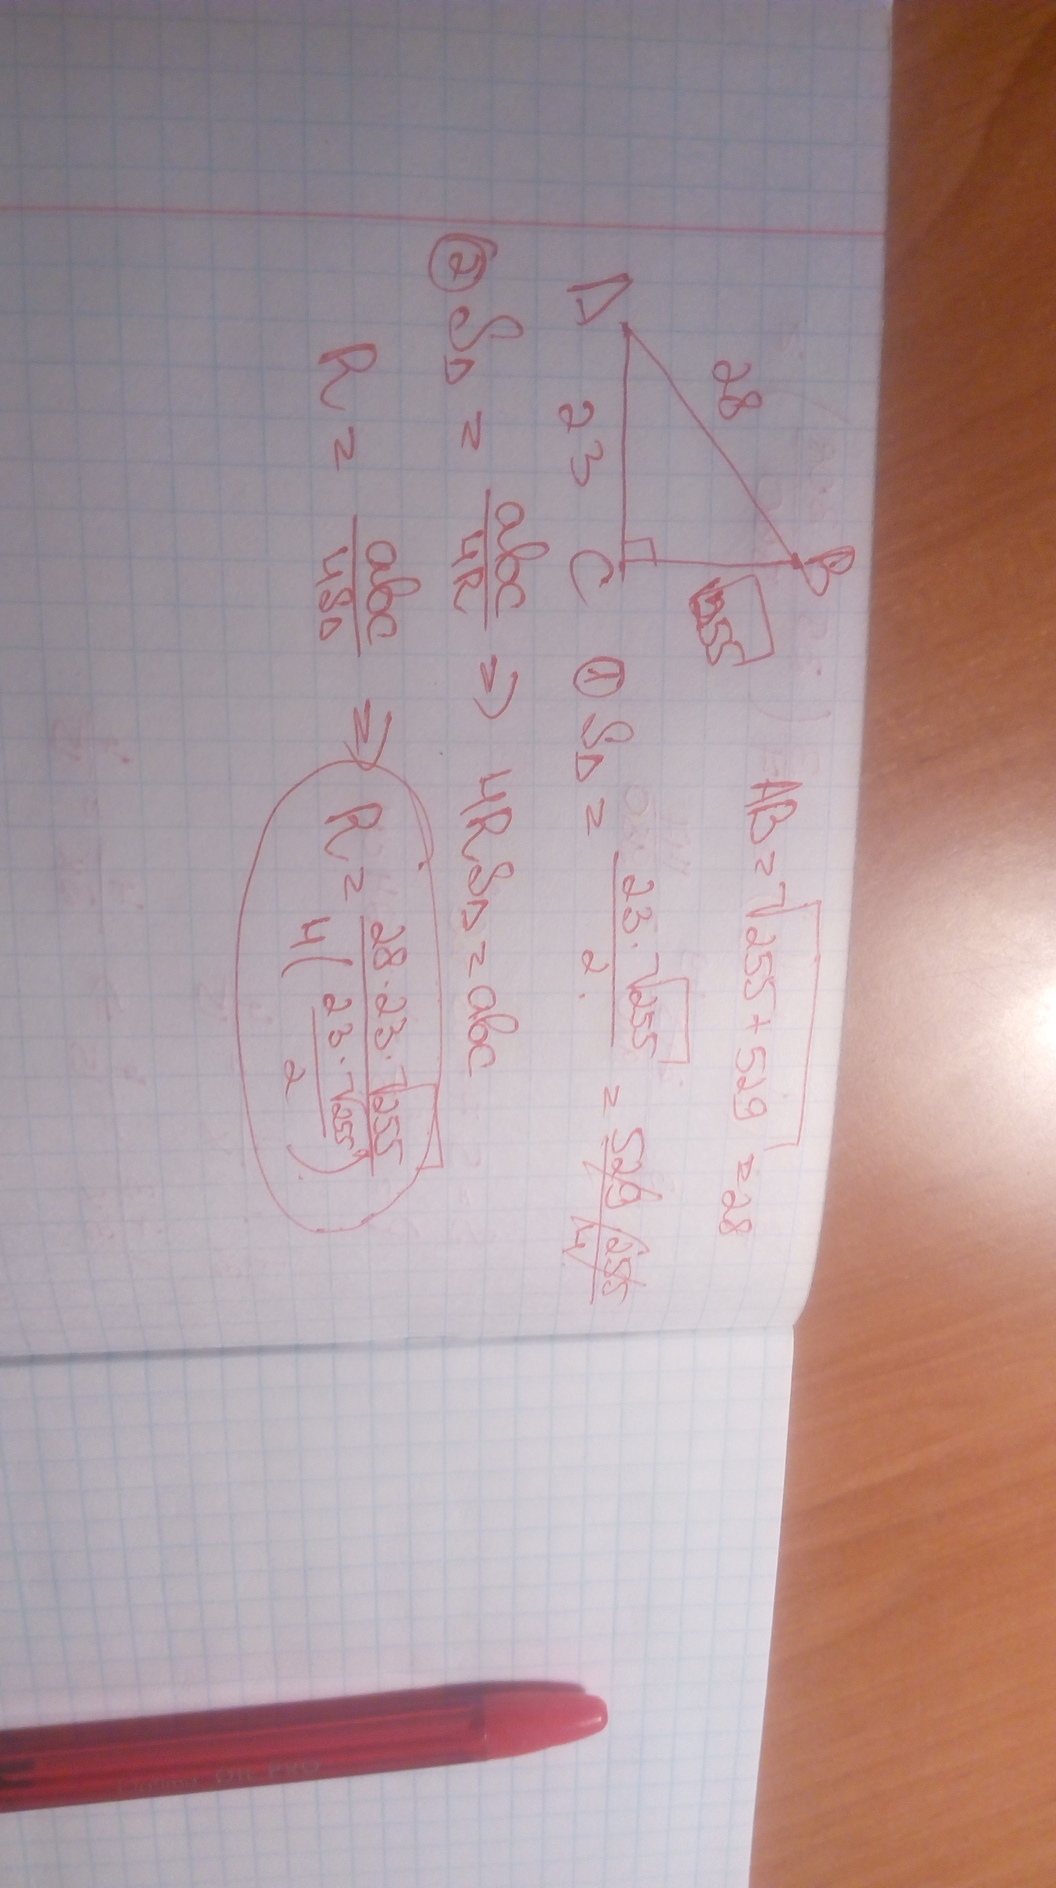 B
28
√255
A 23 C
AB = √255 + 529 = 28
① S△ = 23 · √255 / 2 = 529 · 255 / 4
② S△ = abc / 4R ⇒ 4RS△ = abc
R = abc / 4S△ ⇒ R = 28 · 23 · √255 / 4 ( 23 · √255 / 2 )
OIL PRO